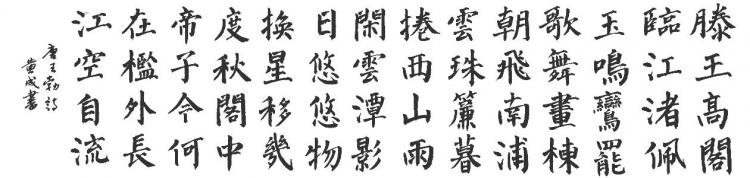 滕王高閣
臨江渚佩
玉鳴鸞罷
歌舞畫棟
朝飛南浦
雲珠簾暮
捲西山雨
閑雲潭影
日悠悠物
換星移幾
度秋閣中
帝子今何
在檻外長
江空自流
唐王勃詩
黄成書